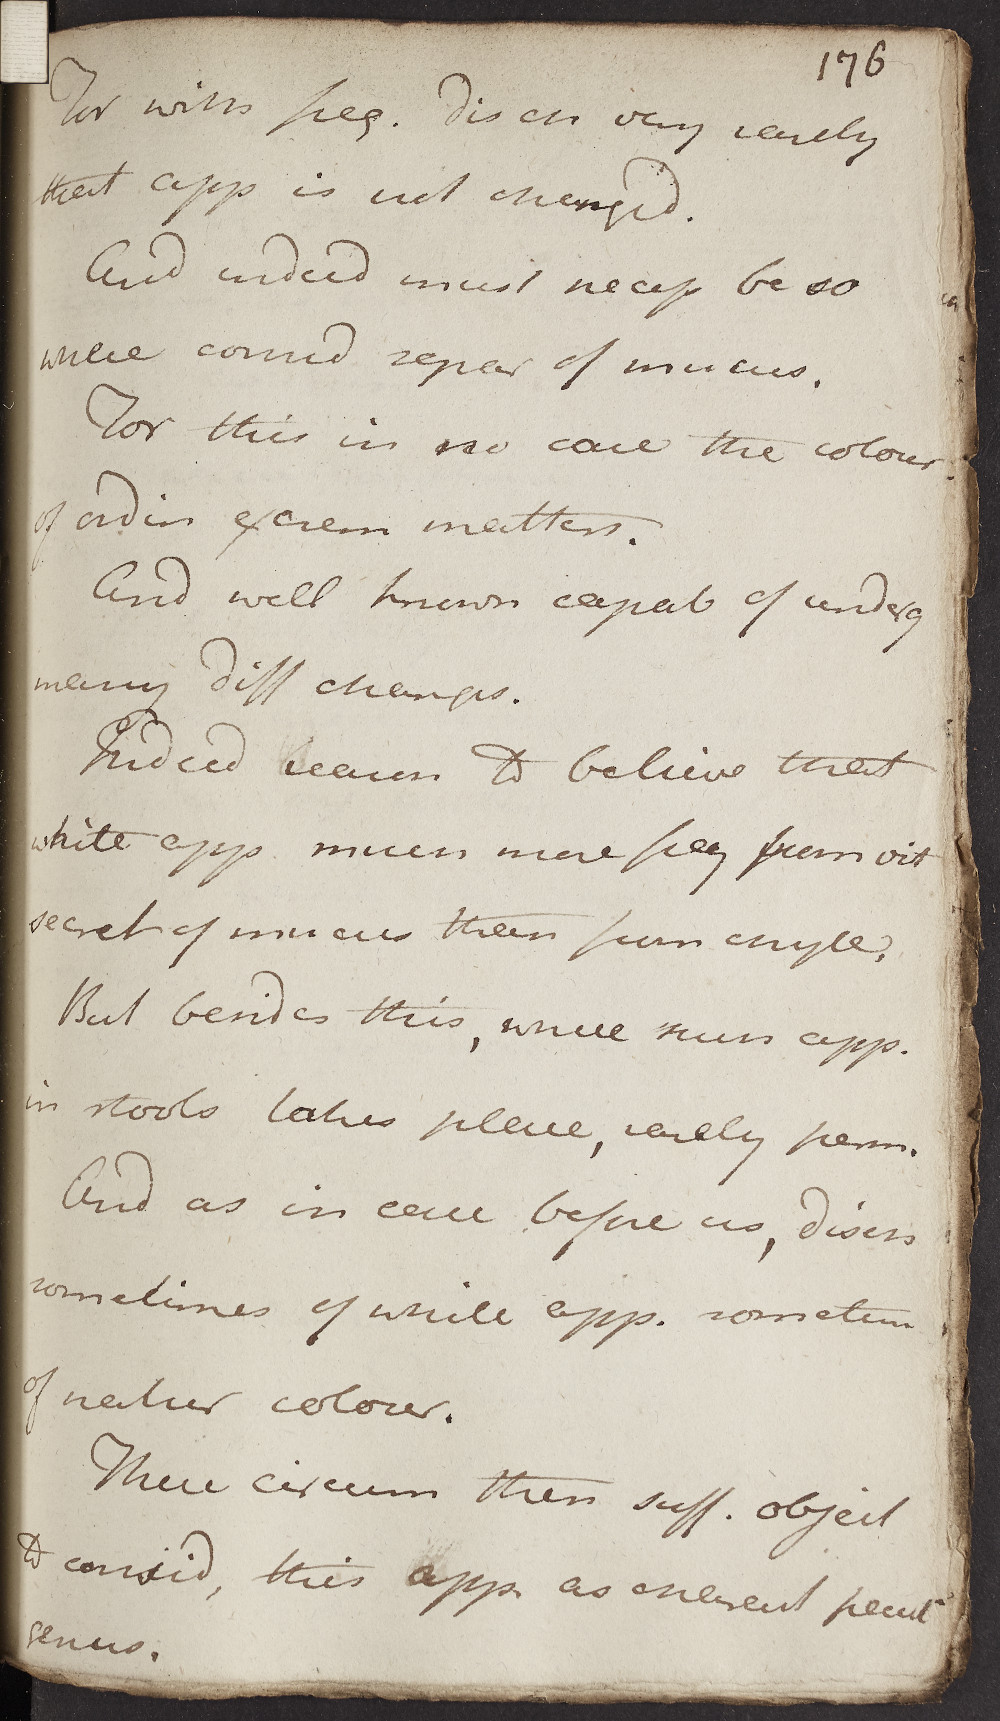 176
For with freq. disch very rarely
that app is not changed.
And indeed must necess be so
where consid separ of mucus.
For this in no case the colour
of ordin excrem matters.
And well known capab of underg
many diff changes.
Indeed reason to believe that
white app much more freq from vit
secret of mucus than from chyle.
But besides this, where such app.
in stools takes place, rarely perm.
And as in case before us, disch
sometimes of white app. sometim
of natur colour.
These circum then suff. object
to consid, this app as charact part
genus.